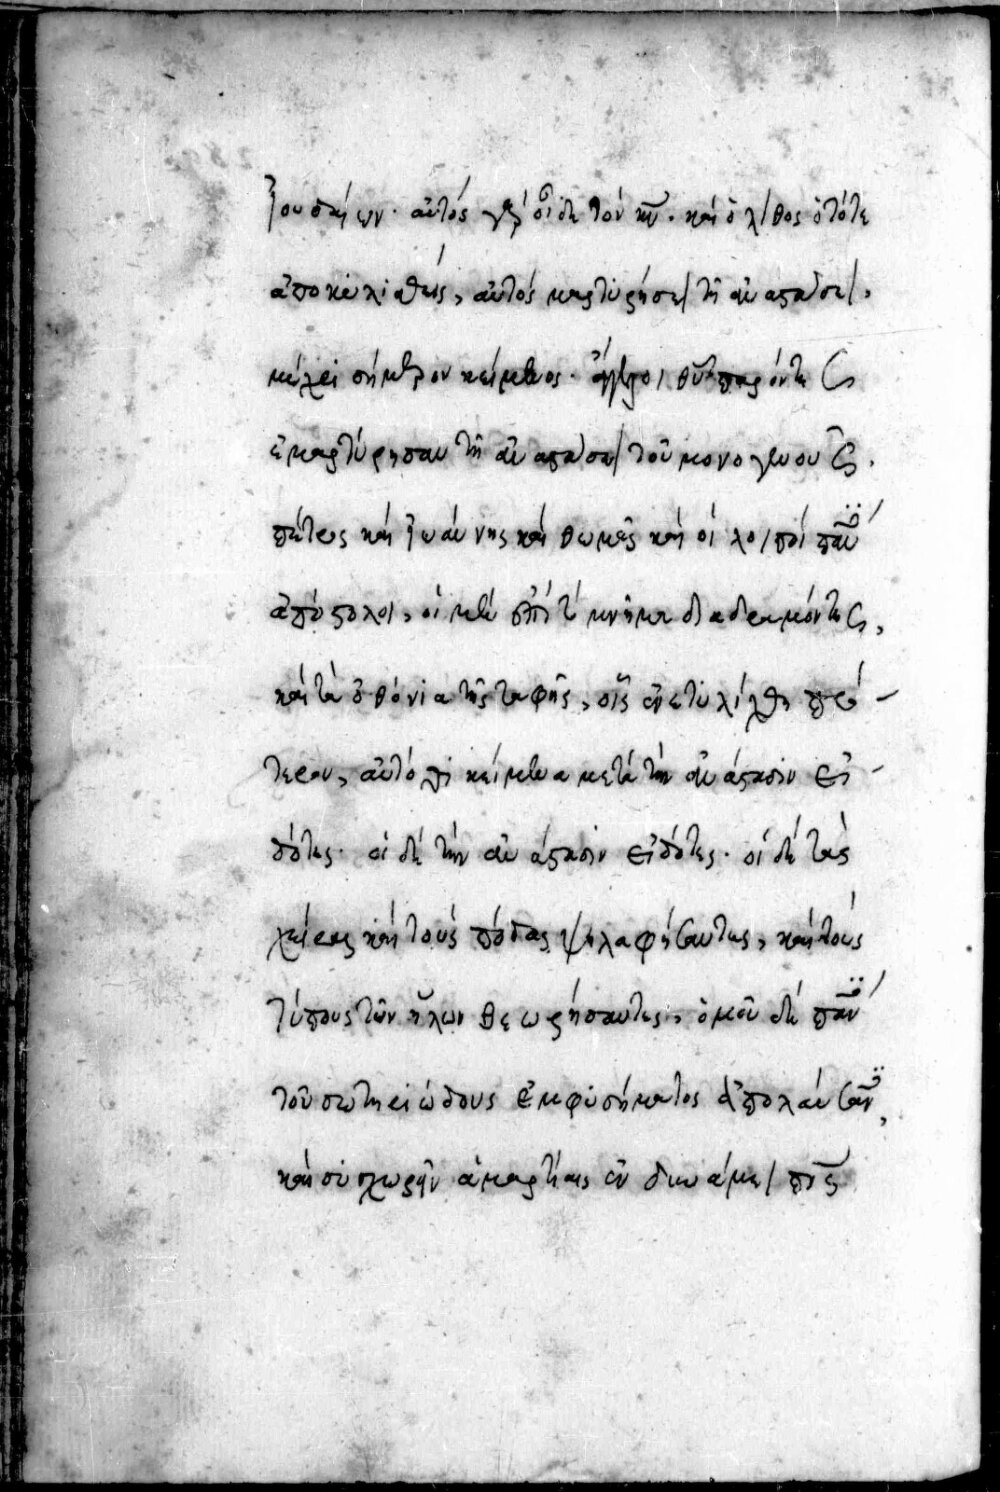 Ἰουδαίων· αὐτὸς γὰρ οἶδε τὸν κν̅· καὶ ὁ λίθος ὁ τότε
ἀποκυλισθεὶς, αὐτὸς μαρτυρήσει τῇ ἀναστάσει,
μέχρι σήμερον κείμενος· ἄγγελοι θυ̅ παρόντες
ἐμαρτύρησαν τῇ ἀναστάσει τοῦ μονογενοῦς.
πέτρος καὶ Ἰωάννης καὶ θωμᾶς καὶ οἱ λοιποὶ πάντες
ἀπόστολοι, οἱ μὲν ἐπὶ τὸ μνῆμα διαδραμόντες,
καὶ τὰ ὀθόνια τῆς ταφῆς, οἷς ἐνετυλίχθη πρό-
τερον, αὐτόθι κείμενα μετὰ τὴν ἀνάστασιν εἰ-
δότες· οἱ δὲ τὴν ἀνάστασιν εἰδότες· οἱ δὲ τὰς
χεῖρας καὶ τοὺς πόδας ψηλαφήσαντες, καὶ τοὺς
τύπους τῶν ἥλων θεωρήσαντες, ὁμοῦ δὲ πάντες
τοῦ σωτηριώδους ἐμφυσήματος ἀπολαύσαντες,
καὶ συγχωρεῖν ἁμαρτίαις ἐν δυνάμει πνς̅